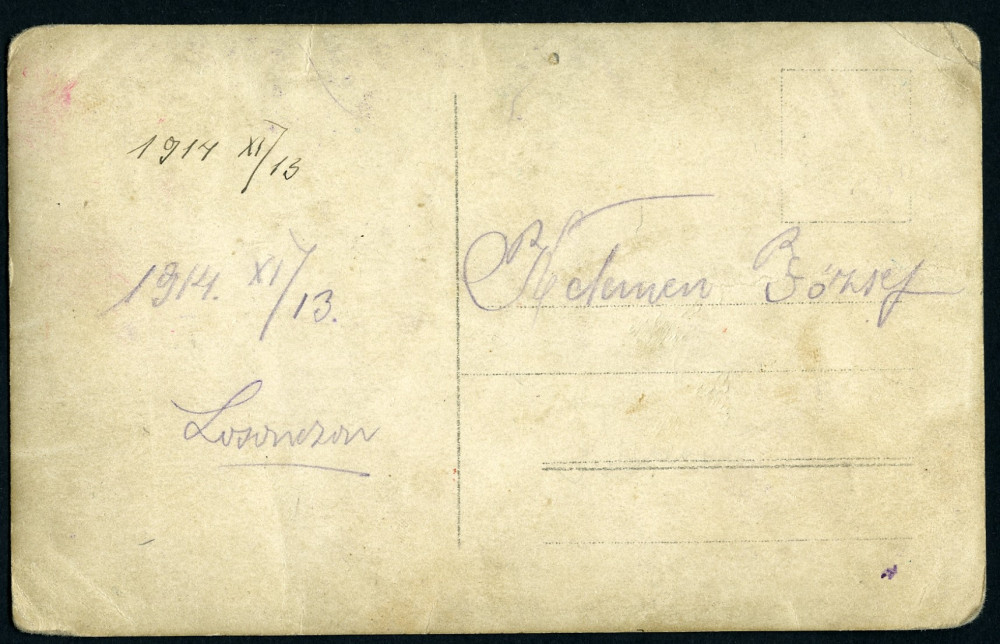 1914 XI/13
1914. XI/13.
Losonczon
Kelemen József